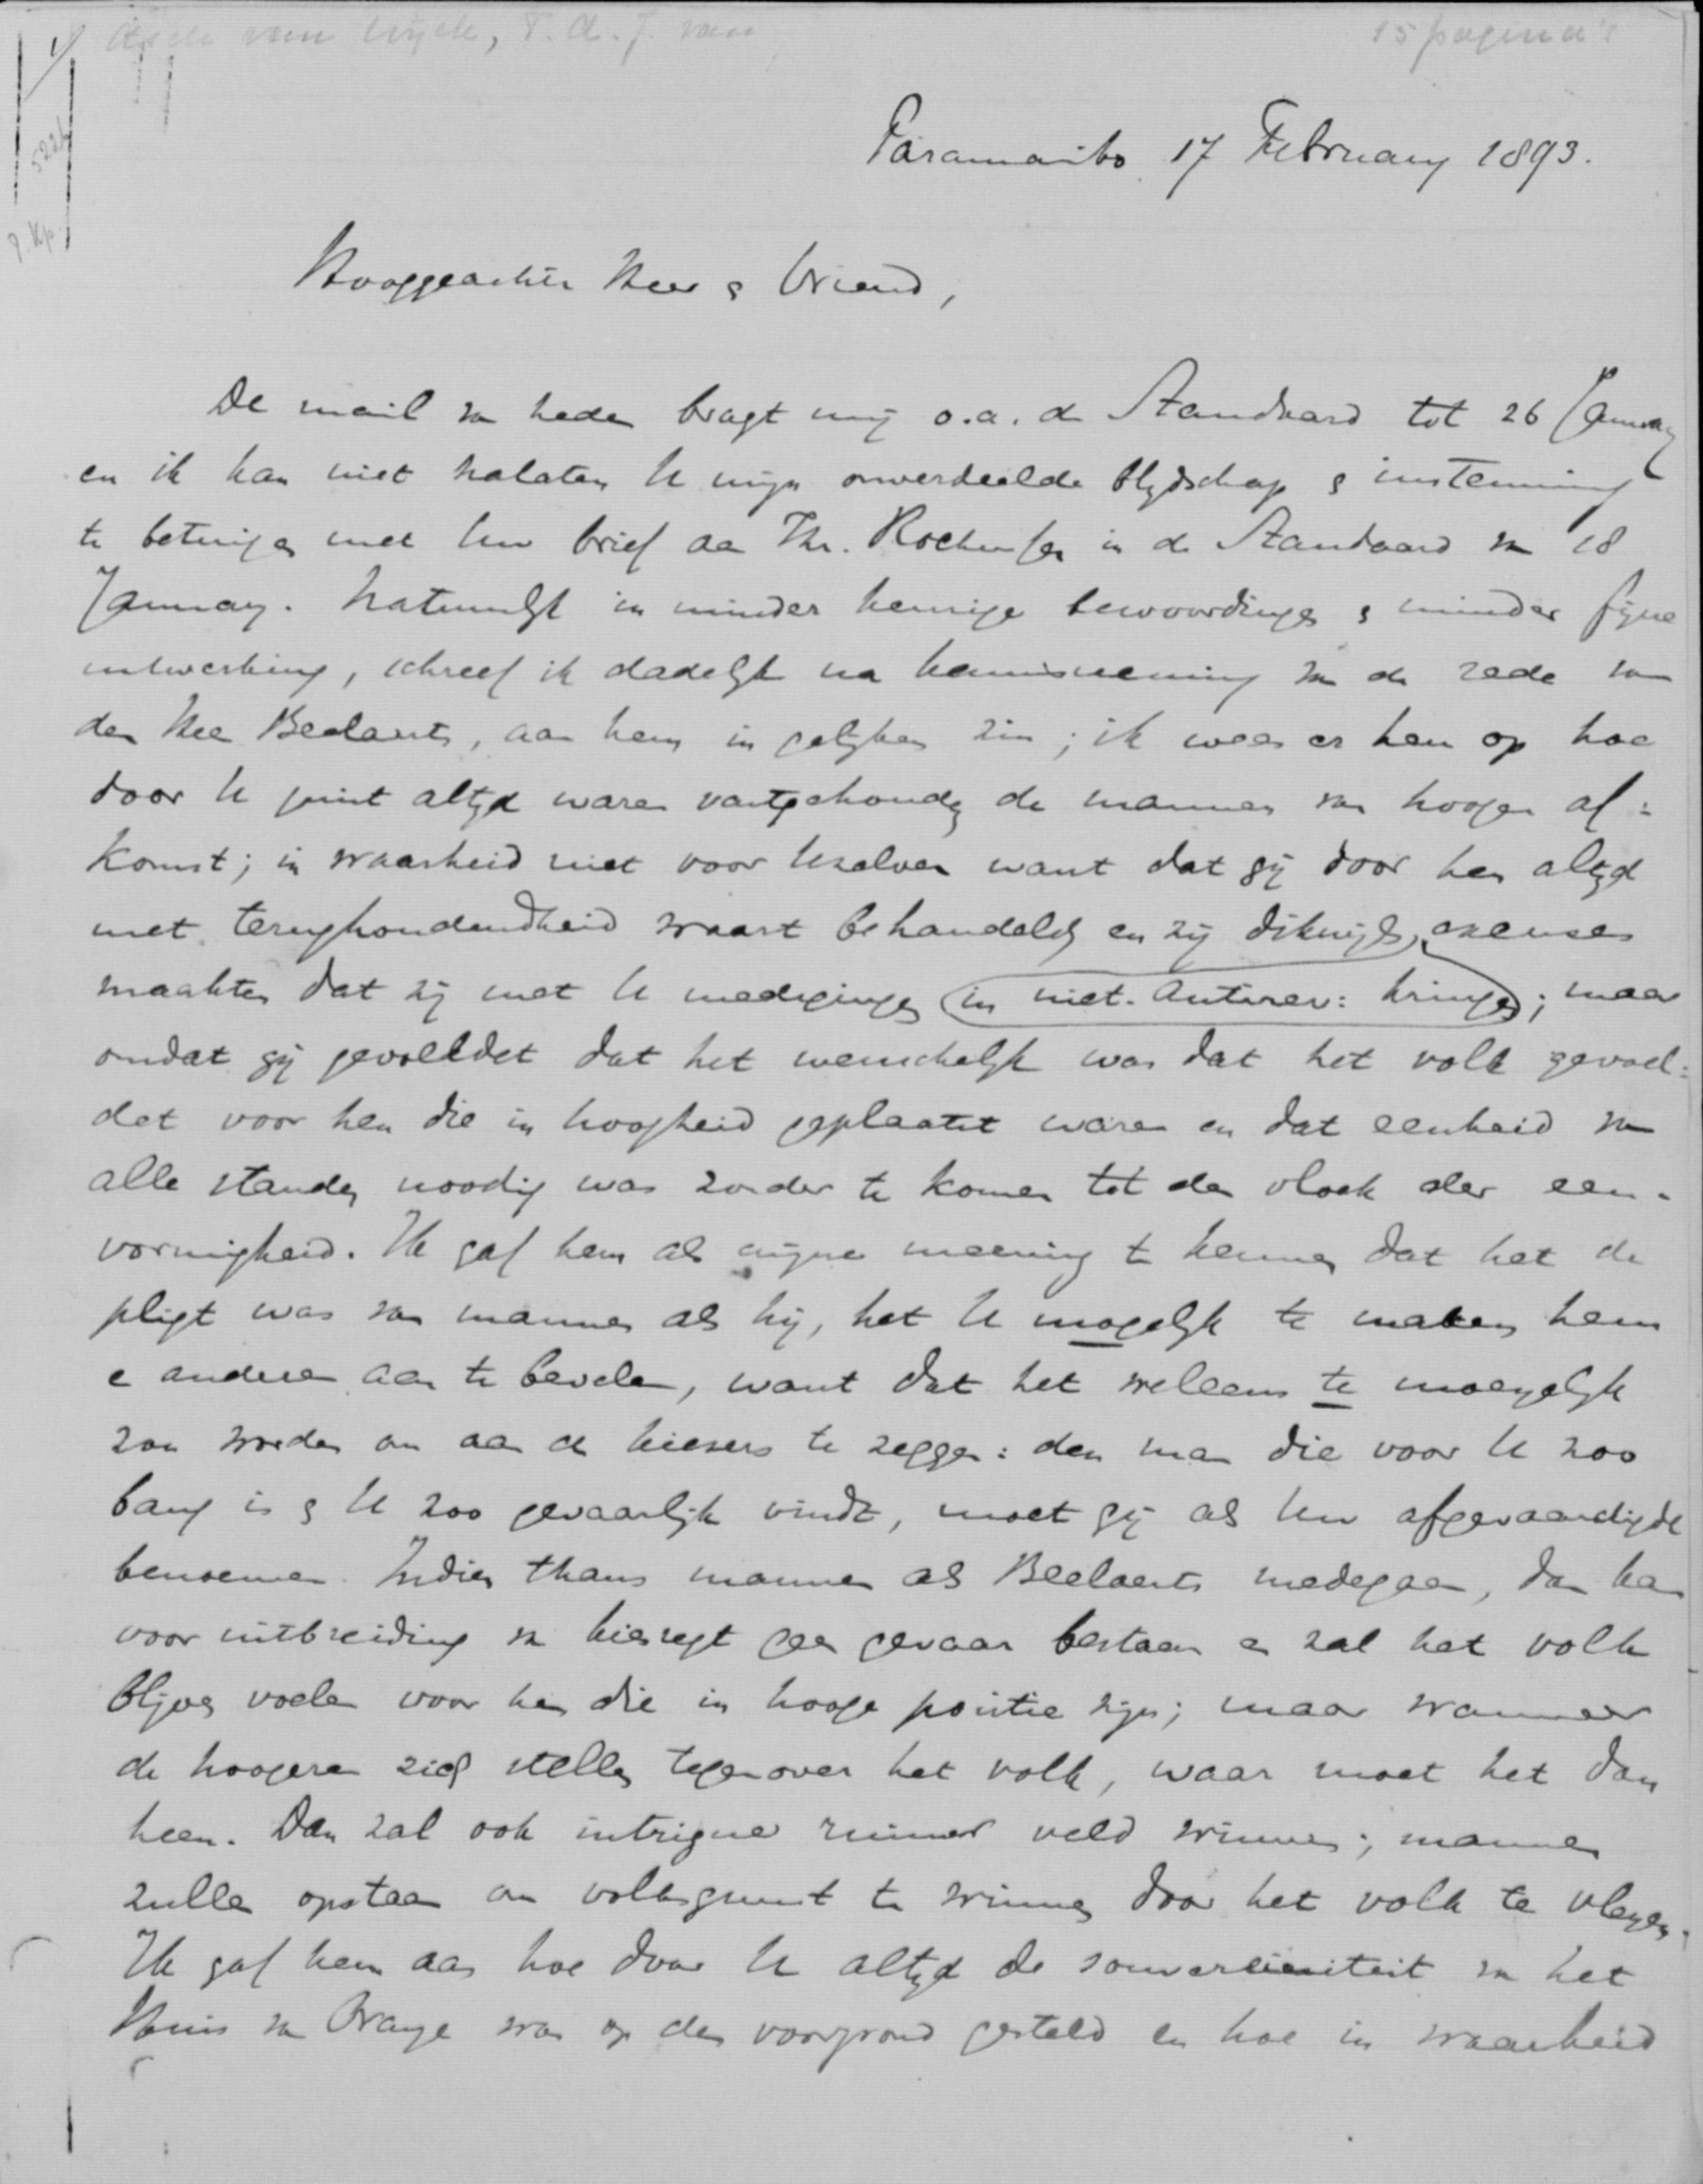 15 pagina's
Paramaribo 17 February 1893.
Hooggeachte Heer & Vriend,
De mail van heden bragt mij o.a. de Standaard tot 26 January
en ik kan niet nalaten U mijn onverdeelde blijdschap & instemming
te betuigen met Uw brief aan Jhr. in de Standaard van 18
January. Natuurlijk in minder kernige bewoordingen & minder fijne
uitwerking, schreef ik dadelijk na kennisneming van de rede van
den Heer Beelaerts, aan hem in gelijken zin; ik wees er hem op hoe
door U juist altijd waren vastgehouden de mannen van hooger af:
komst; in waarheid niet voor Uzelven want dat gij door hen altijd
met terughoudendheid waart behandeld en zij dikwijls excuses
maakten dat zij met U medegingen in niet-Antirev: kringen; maar
omdat gij gevoeldet dat het wenschelijk was dat het volk gevoel:
det voor hen die in hoogheid geplaatst waren en dat eenheid van
alle standen noodig was zonder te komen tot den vloek der een-
vormigheid. Ik gaf hem als mijne meening te kennen dat het de
pligt was van mannen als hij, het U mogelijk te maken hem
e anderen aan te bevelen, want dat het weleens te moeyelijk
zou worden om aan de kiesers te zeggen: den man die voor U zoo
bang is & U zoo gevaarlijk vindt, moet gij als Uw afgevaardigde
benoemen. Indien thans mannen als Beelaerts medegaan, dan kan
voor uitbreiding van kiesregt geen gevaar bestaan en zal het volk
blijven voelen voor hen die in hooge positie zijn; maar wanneer
de hoogeren zich stellen tegenover het volk, waar moet het dan
heen. Dan zal ook intrigue ruimer veld winnen; mannen
zullen opstaan om volksgunst te winnen door het volk te vleyen.
Ik gaf hem aan hoe door U altijd de souvereiniteit van het
Huis van Oranje was op den voorgrond gesteld en hoe in waarheid